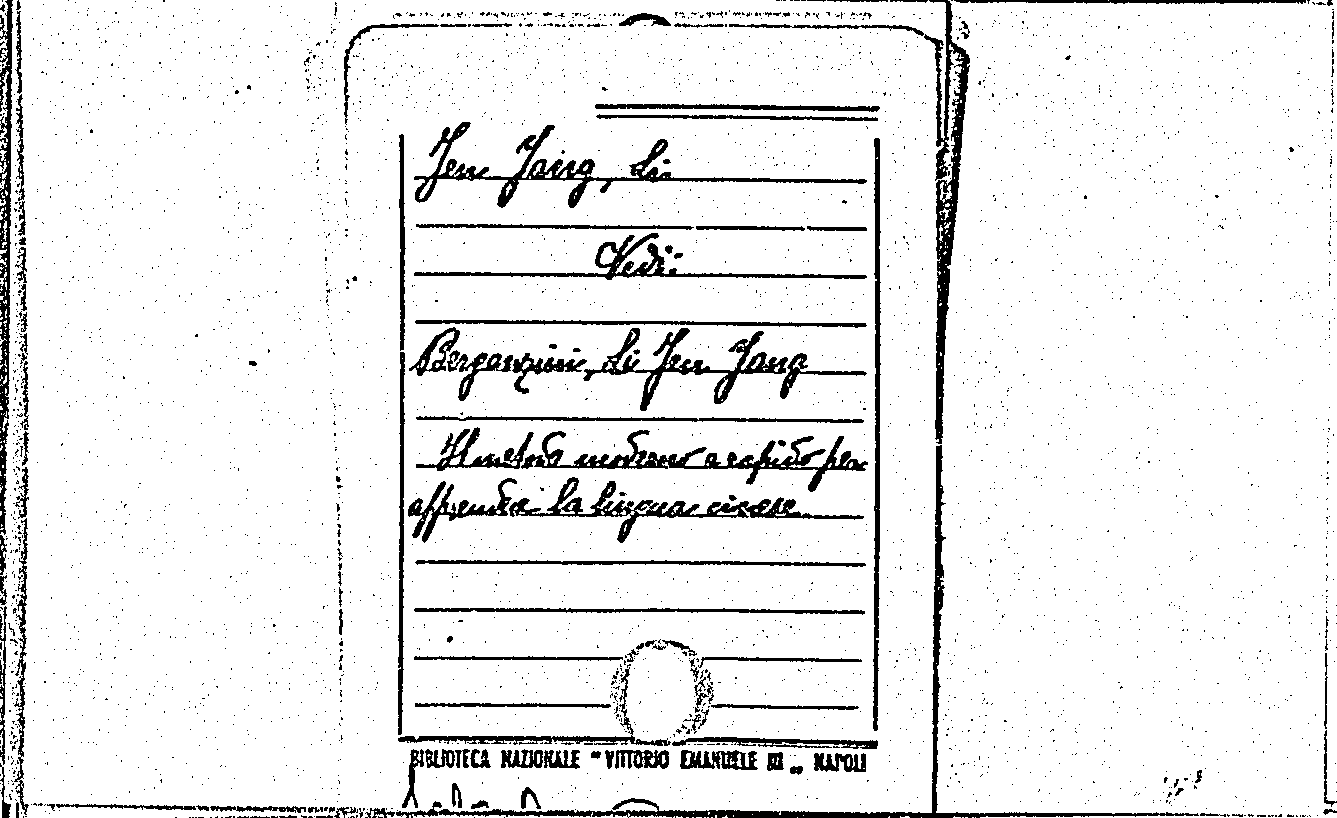 Jen Jang, Li
Vedi:
Berganzini, Li Jen Jang
Il metodo moderno e rapido per
apprendere la lingua cinese
BIBLIOTECA NAZIONALE "VITTORIO EMANUELE III„ NAPOLI